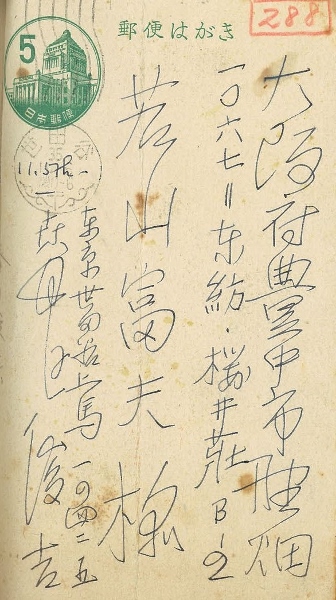 郵便はがき
288
5
日本郵便
大阪府豊中市野畑
一〇六七＝東紡・桜井荘B-2
若山富夫様
東京世田谷上馬一の四二五
俊吉
11.5th